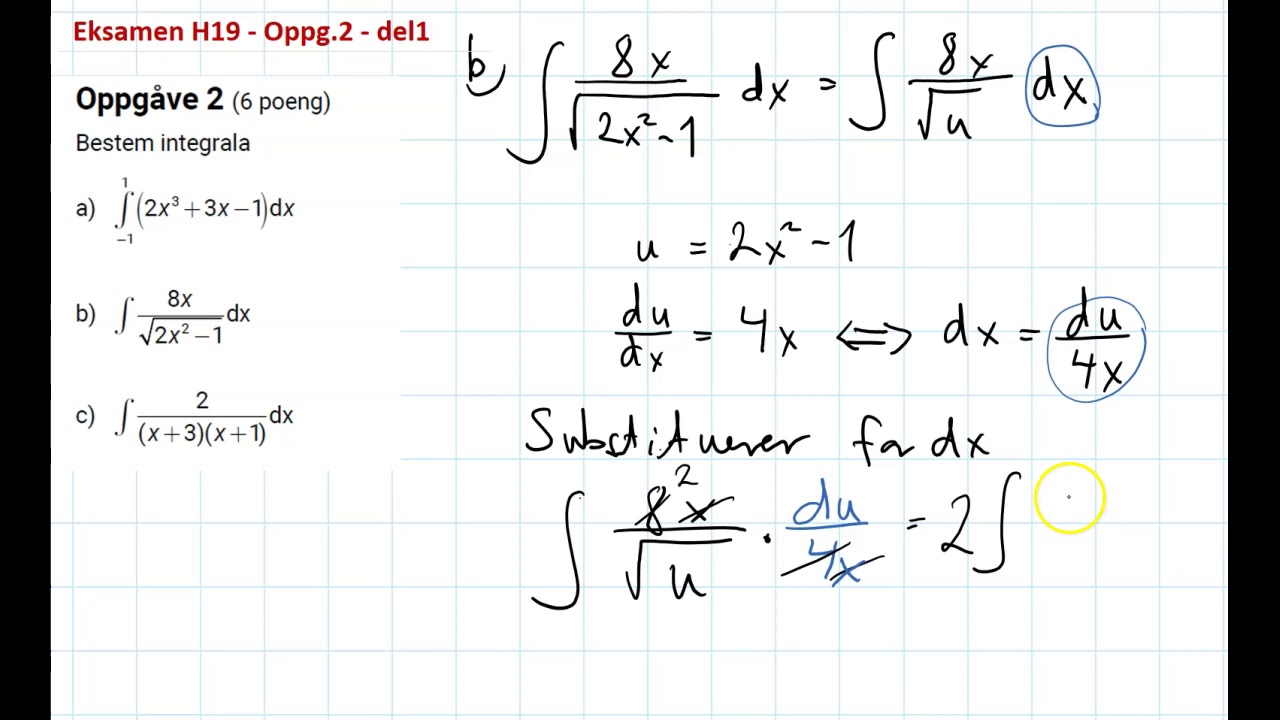 Eksamen H19 - Oppg.2 - del1
Oppgåve 2 (6 poeng)
Bestem integrala
a) ∫₋₁¹ (2x³ + 3x − 1)dx
b) ∫ 8x / √(2x² − 1) dx
c) ∫ 2 / ((x + 3)(x + 1)) dx
b) ∫ 8x / √(2x² − 1) dx = ∫ 8x / √u dx
u = 2x² − 1
du/dx = 4x ⟺ dx = du/4x
Substituerer for dx
∫ 8² x / √u · du/4x = 2 ∫